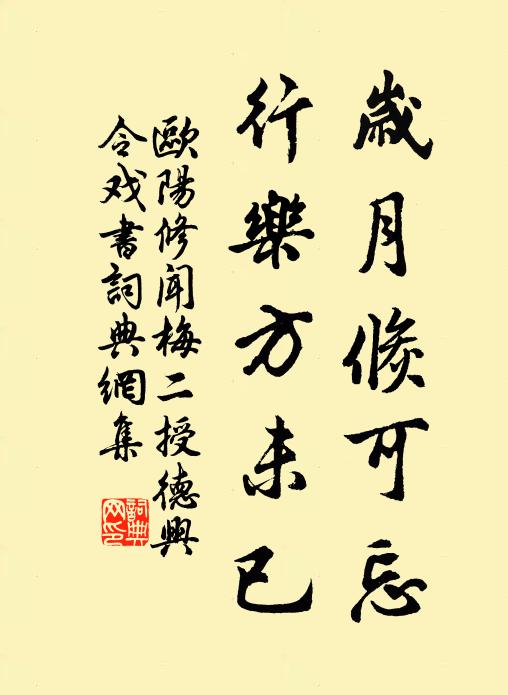 歲月倏可忘
行樂方未已
歐陽修聞梅二授德興
令戏書詞典網集
詞典
网印